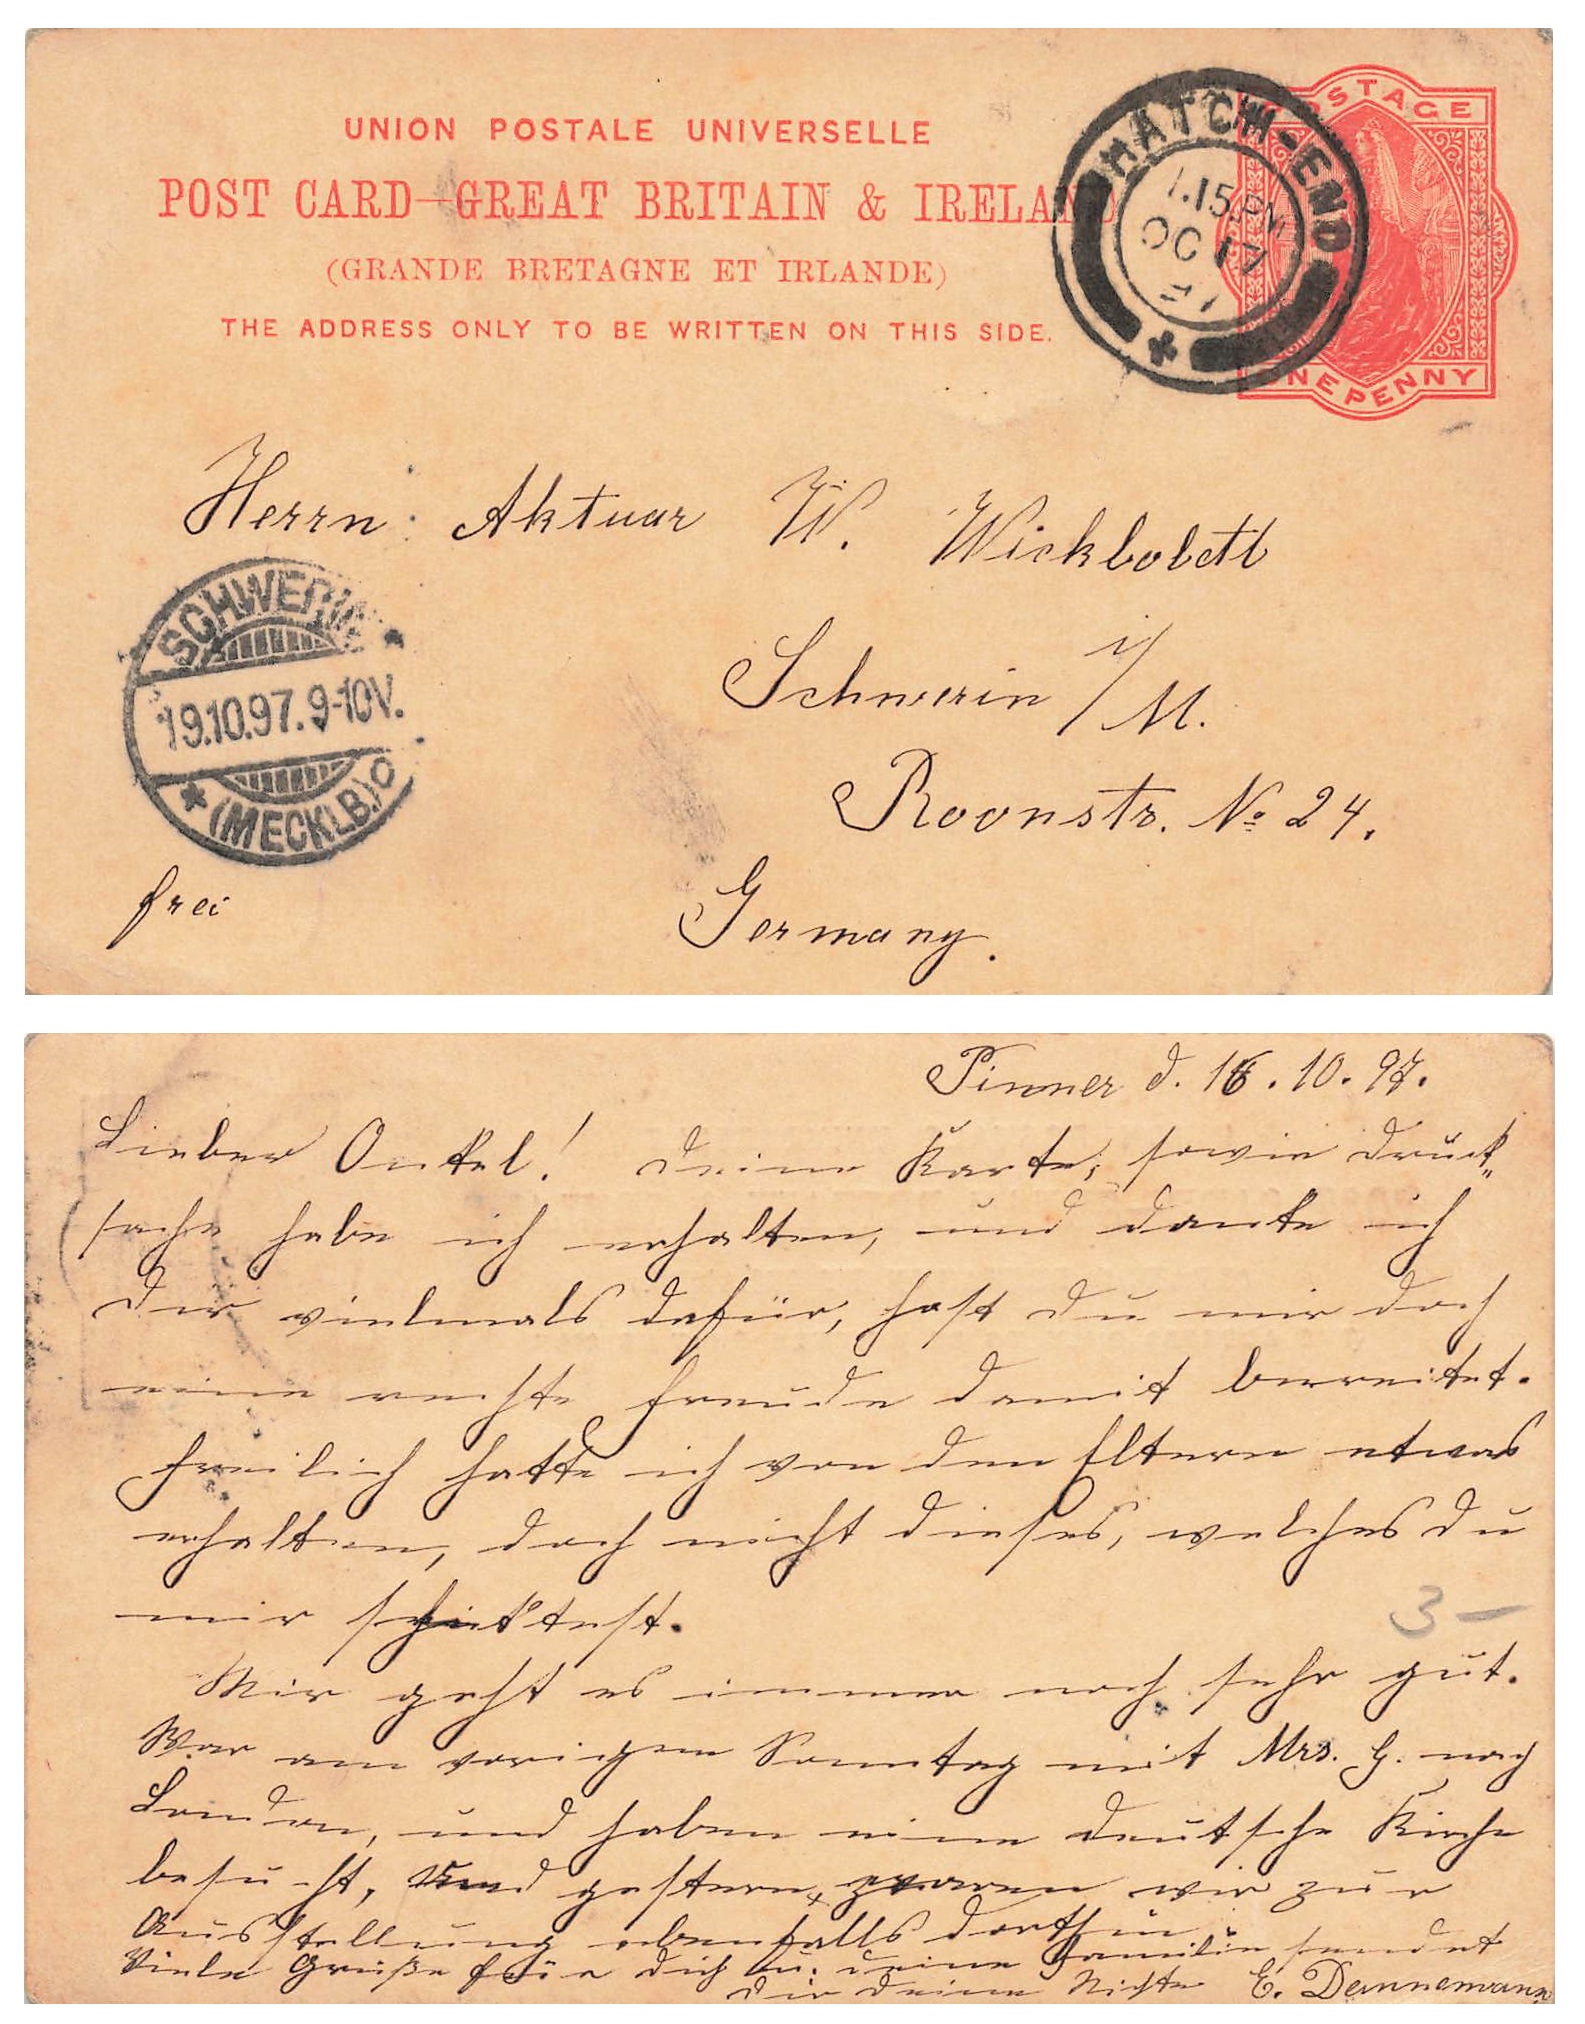 UNION POSTALE UNIVERSELLE
POST CARD—GREAT BRITAIN & IRELAND
(GRANDE BRETAGNE ET IRLANDE)
THE ADDRESS ONLY TO BE WRITTEN ON THIS SIDE.
POSTAGE
ONE PENNY
HATCH-END
1.15 PM
OC 17
97
Herrn Aktuar W. Wickboldt
Schwerin i/M.
Roonstr. No 24.
Germany.
frei
SCHWERIN
19.10.97.9-10V.
(MECKLB.)
Pinner d. 16.10.97.
Lieber Onkel! Deine Karte, sowie Druck„
sache habe ich erhalten, und danke ich
Dir vielmals dafür, hast Du mir doch
eine rechte Freude damit bereitet.
Freilich hatte ich von den Eltern etwas
erhalten, doch nicht dieses, welches Du
mir schicktest.
3 —
Mir geht es immer noch sehr gut.
War am vorigen Sonntag mit Mrs. G. nach
London, und haben eine deutsche Kirche
besucht, und gestern waren wir zur
Ausstellung ebenfalls dorthin.
Viele Grüße für Dich u. Deine Familie sendet
Dir Deine Nichte E. Dannemann